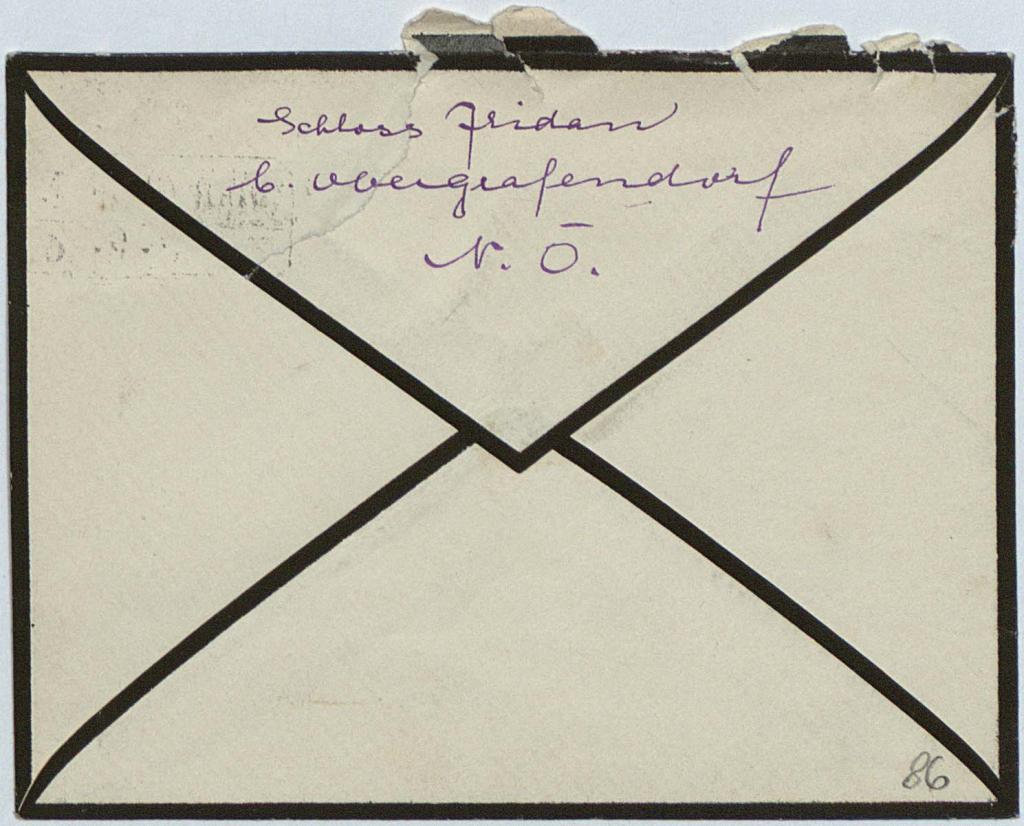 Schloss Fridau
b. Obergrafendorf
N. Ö.
86